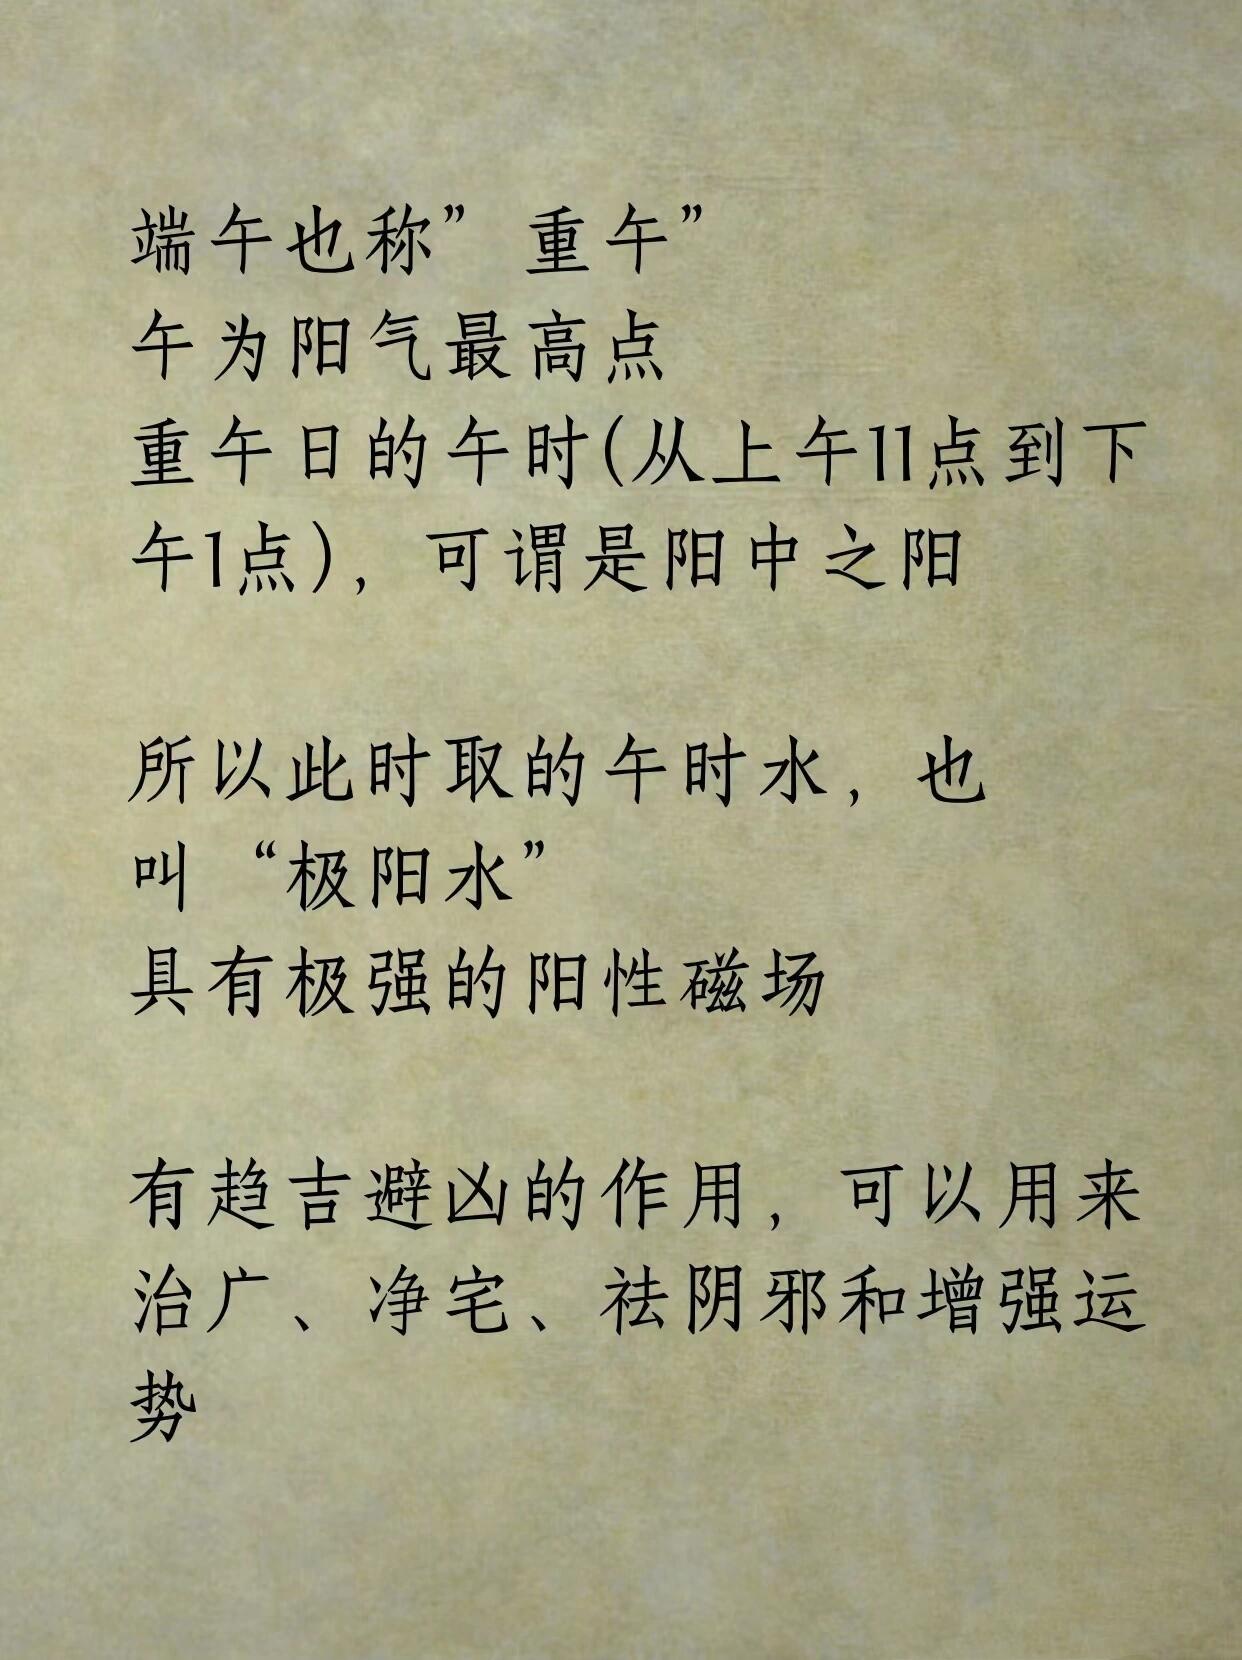 端午也称”重午”
午为阳气最高点
重午日的午时(从上午11点到下
午1点)，可谓是阳中之阳
所以此时取的午时水，也
叫“极阳水”
具有极强的阳性磁场
有趋吉避凶的作用，可以用来
治广、净宅、祛阴邪和增强运
势